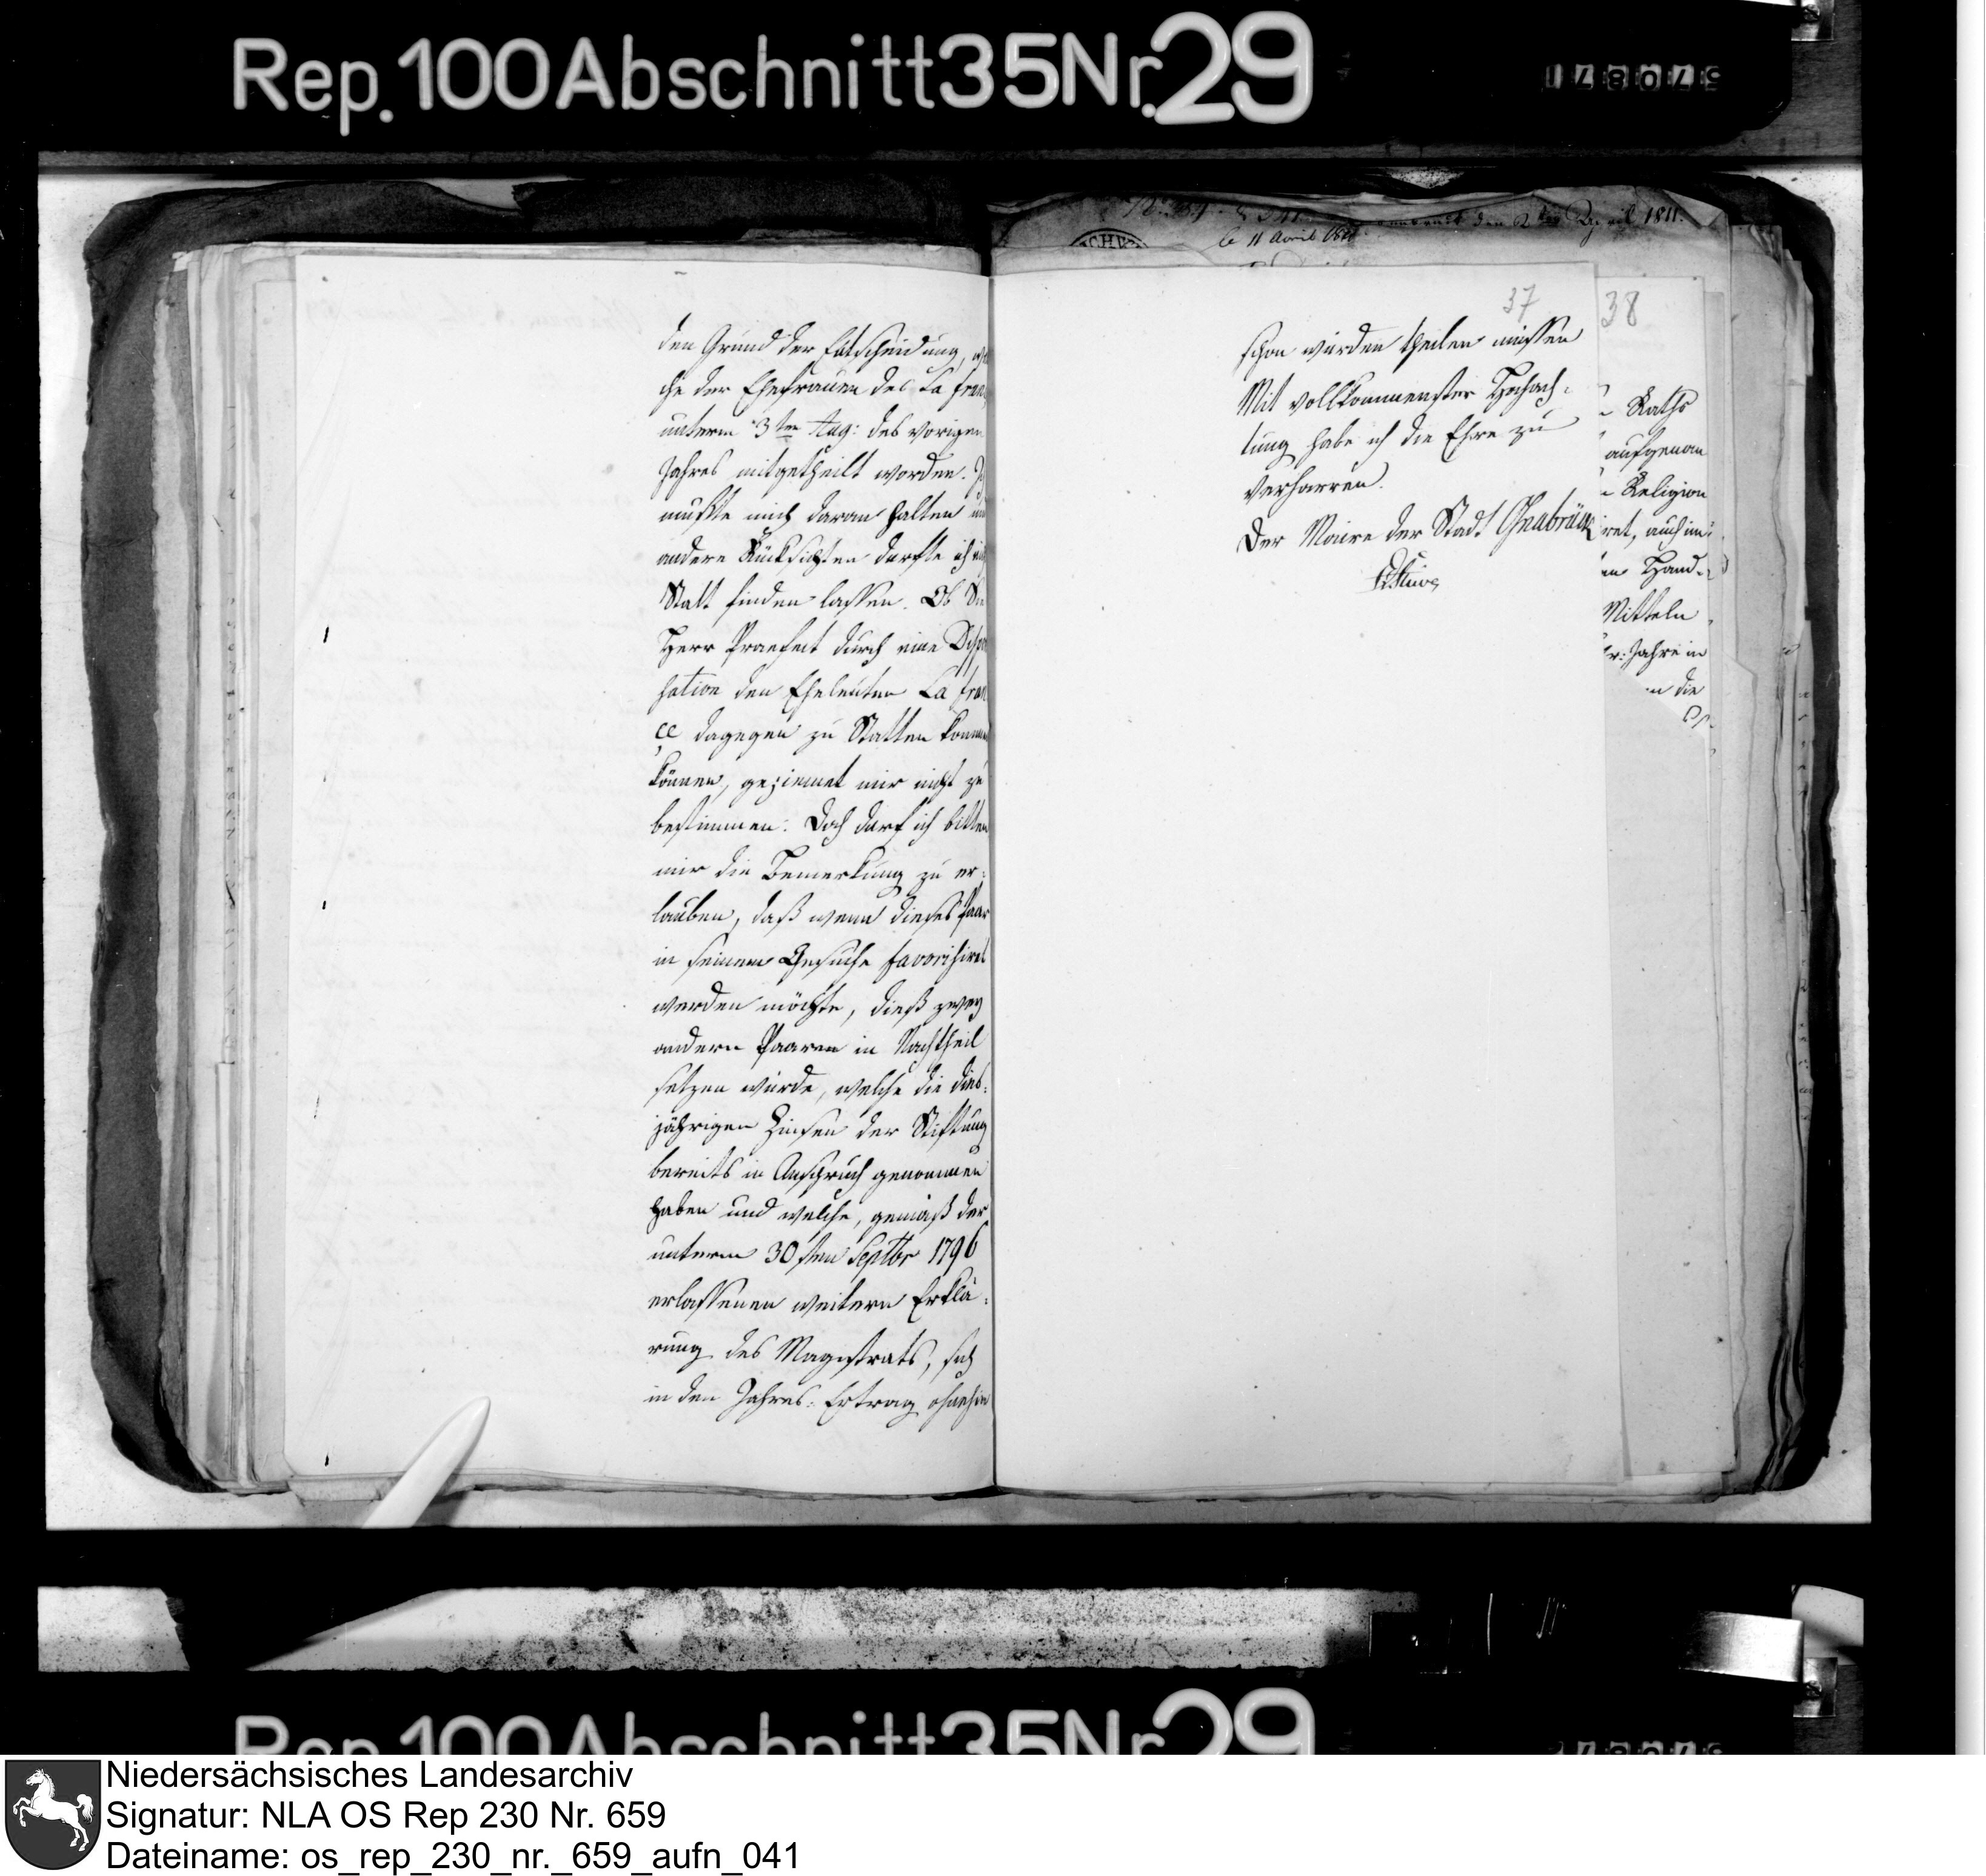 Rep. 100 Abschnitt 35 Nr. 29
den Grund der Entscheidung, wel
che der Ehefrauen des La Fran
unterm 3ten Aug: des vorigen
Jahres mitgetheilt worden. Ich
mußte mich daran halten und
andere Rücksichten durfte ich nicht
Statt finden lassen. Ob Sie
Herr Praefect durch eine Dispen
sation den Eheleuten La Fran
ce dagegen zu Statten kommen
können, geziemet mir nicht zu
bestimmen: Doch darf ich bitten
mir die Bemerkung zu er:
lauben, daß wenn dieses Paar
in seinem Gesuche favorisiret
werden möchte, dieß zwey
andern Paaren in Nachtheil
setzen würde, welche die dies:
jährigen Zinsen der Stiftung
bereits in Anspruch genommen
haben und welche, gemäß der
unterm 30sten Septbr 1796
erlassenen weitern Erklä:
rung des Magistrats, sich
in den Jahres-Ertrag ohnehin
le 11 Avril
April 1811.
37
schon würden theilen müssen
Mit vollkommenster Hochach:
tung habe ich die Ehre zu
verharren.
Der Maire der Stadt Osnabrück
Stüve
38
Raths
aufgenom
Religion
iret, auch im
Hand-
Mitteln
Jahre in
die
Rep. 100 Abschnitt 35 Nr. 29
Niedersächsisches Landesarchiv
Signatur: NLA OS Rep 230 Nr. 659
Dateiname: os_rep_230_nr._659_aufn_041